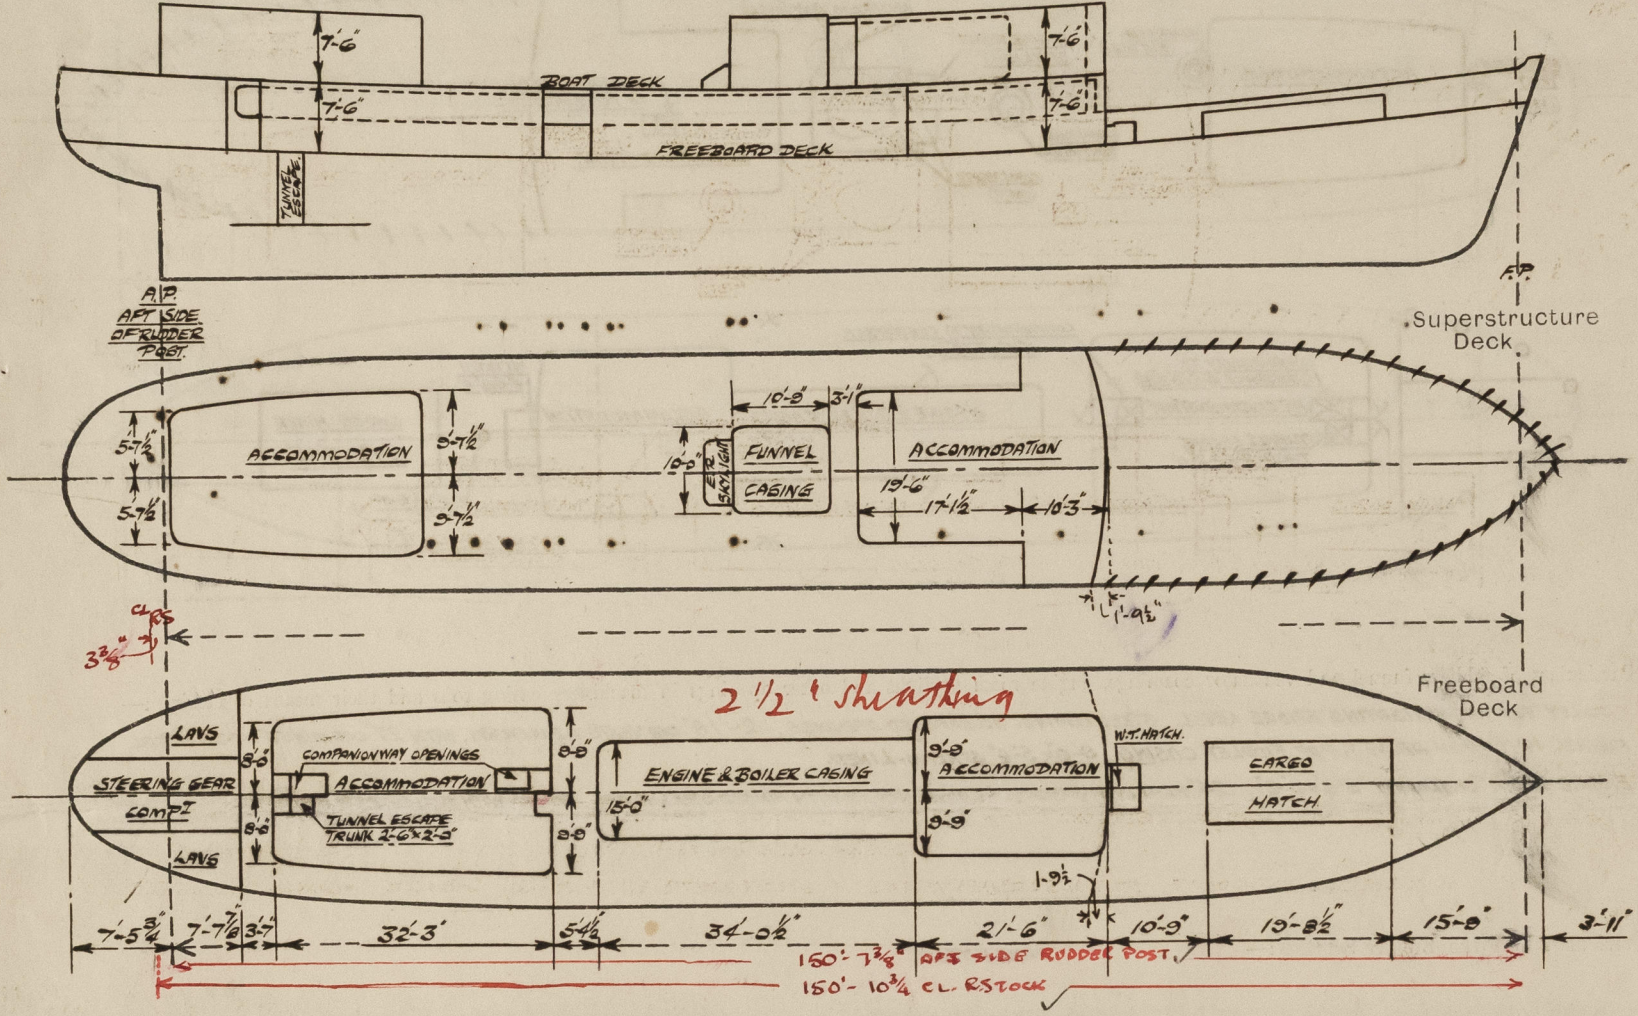 7'-6"
7'-6"
7'-6"
7'-6"
BOAT DECK
FREEBOARD DECK
TUNNEL
ESCAPE
A.P.
AFT SIDE
OF RUDDER
POST.
F.P.
Superstructure
Deck.
5'-7½"
5'-7½"
ACCOMMODATION
9'-7½"
9'-7½"
10'-9" 3'-1"
10'-0"
E.R.
SKYLIGHT
FUNNEL
CASING
ACCOMMODATION
19'-6"
17'-1½" 10'-3"
1'-9½"
CL RS
3⅜"
2 1/2" sheathing
Freeboard
Deck
LAVS
STEERING GEAR
COMPT
LAVS
8'-6"
8'-6"
COMPANIONWAY OPENINGS
ACCOMMODATION
TUNNEL ESCAPE
TRUNK 2'-6"×2'-0"
9'-9"
9'-9"
15'-0"
ENGINE & BOILER CASING
9'-9"
ACCOMMODATION
9'-9"
W.T. HATCH.
CARGO
HATCH.
1'-9½
7'-5¾" 7'-7⅞" 3'-7" 32'-3" 5'-4½ 34'-0½" 21'-6" 10'-9" 19'-8½" 15'-8" 3'-11"
150'-7⅜" AFT SIDE RUDDER POST.
150'-10¾ CL. R.STOCK